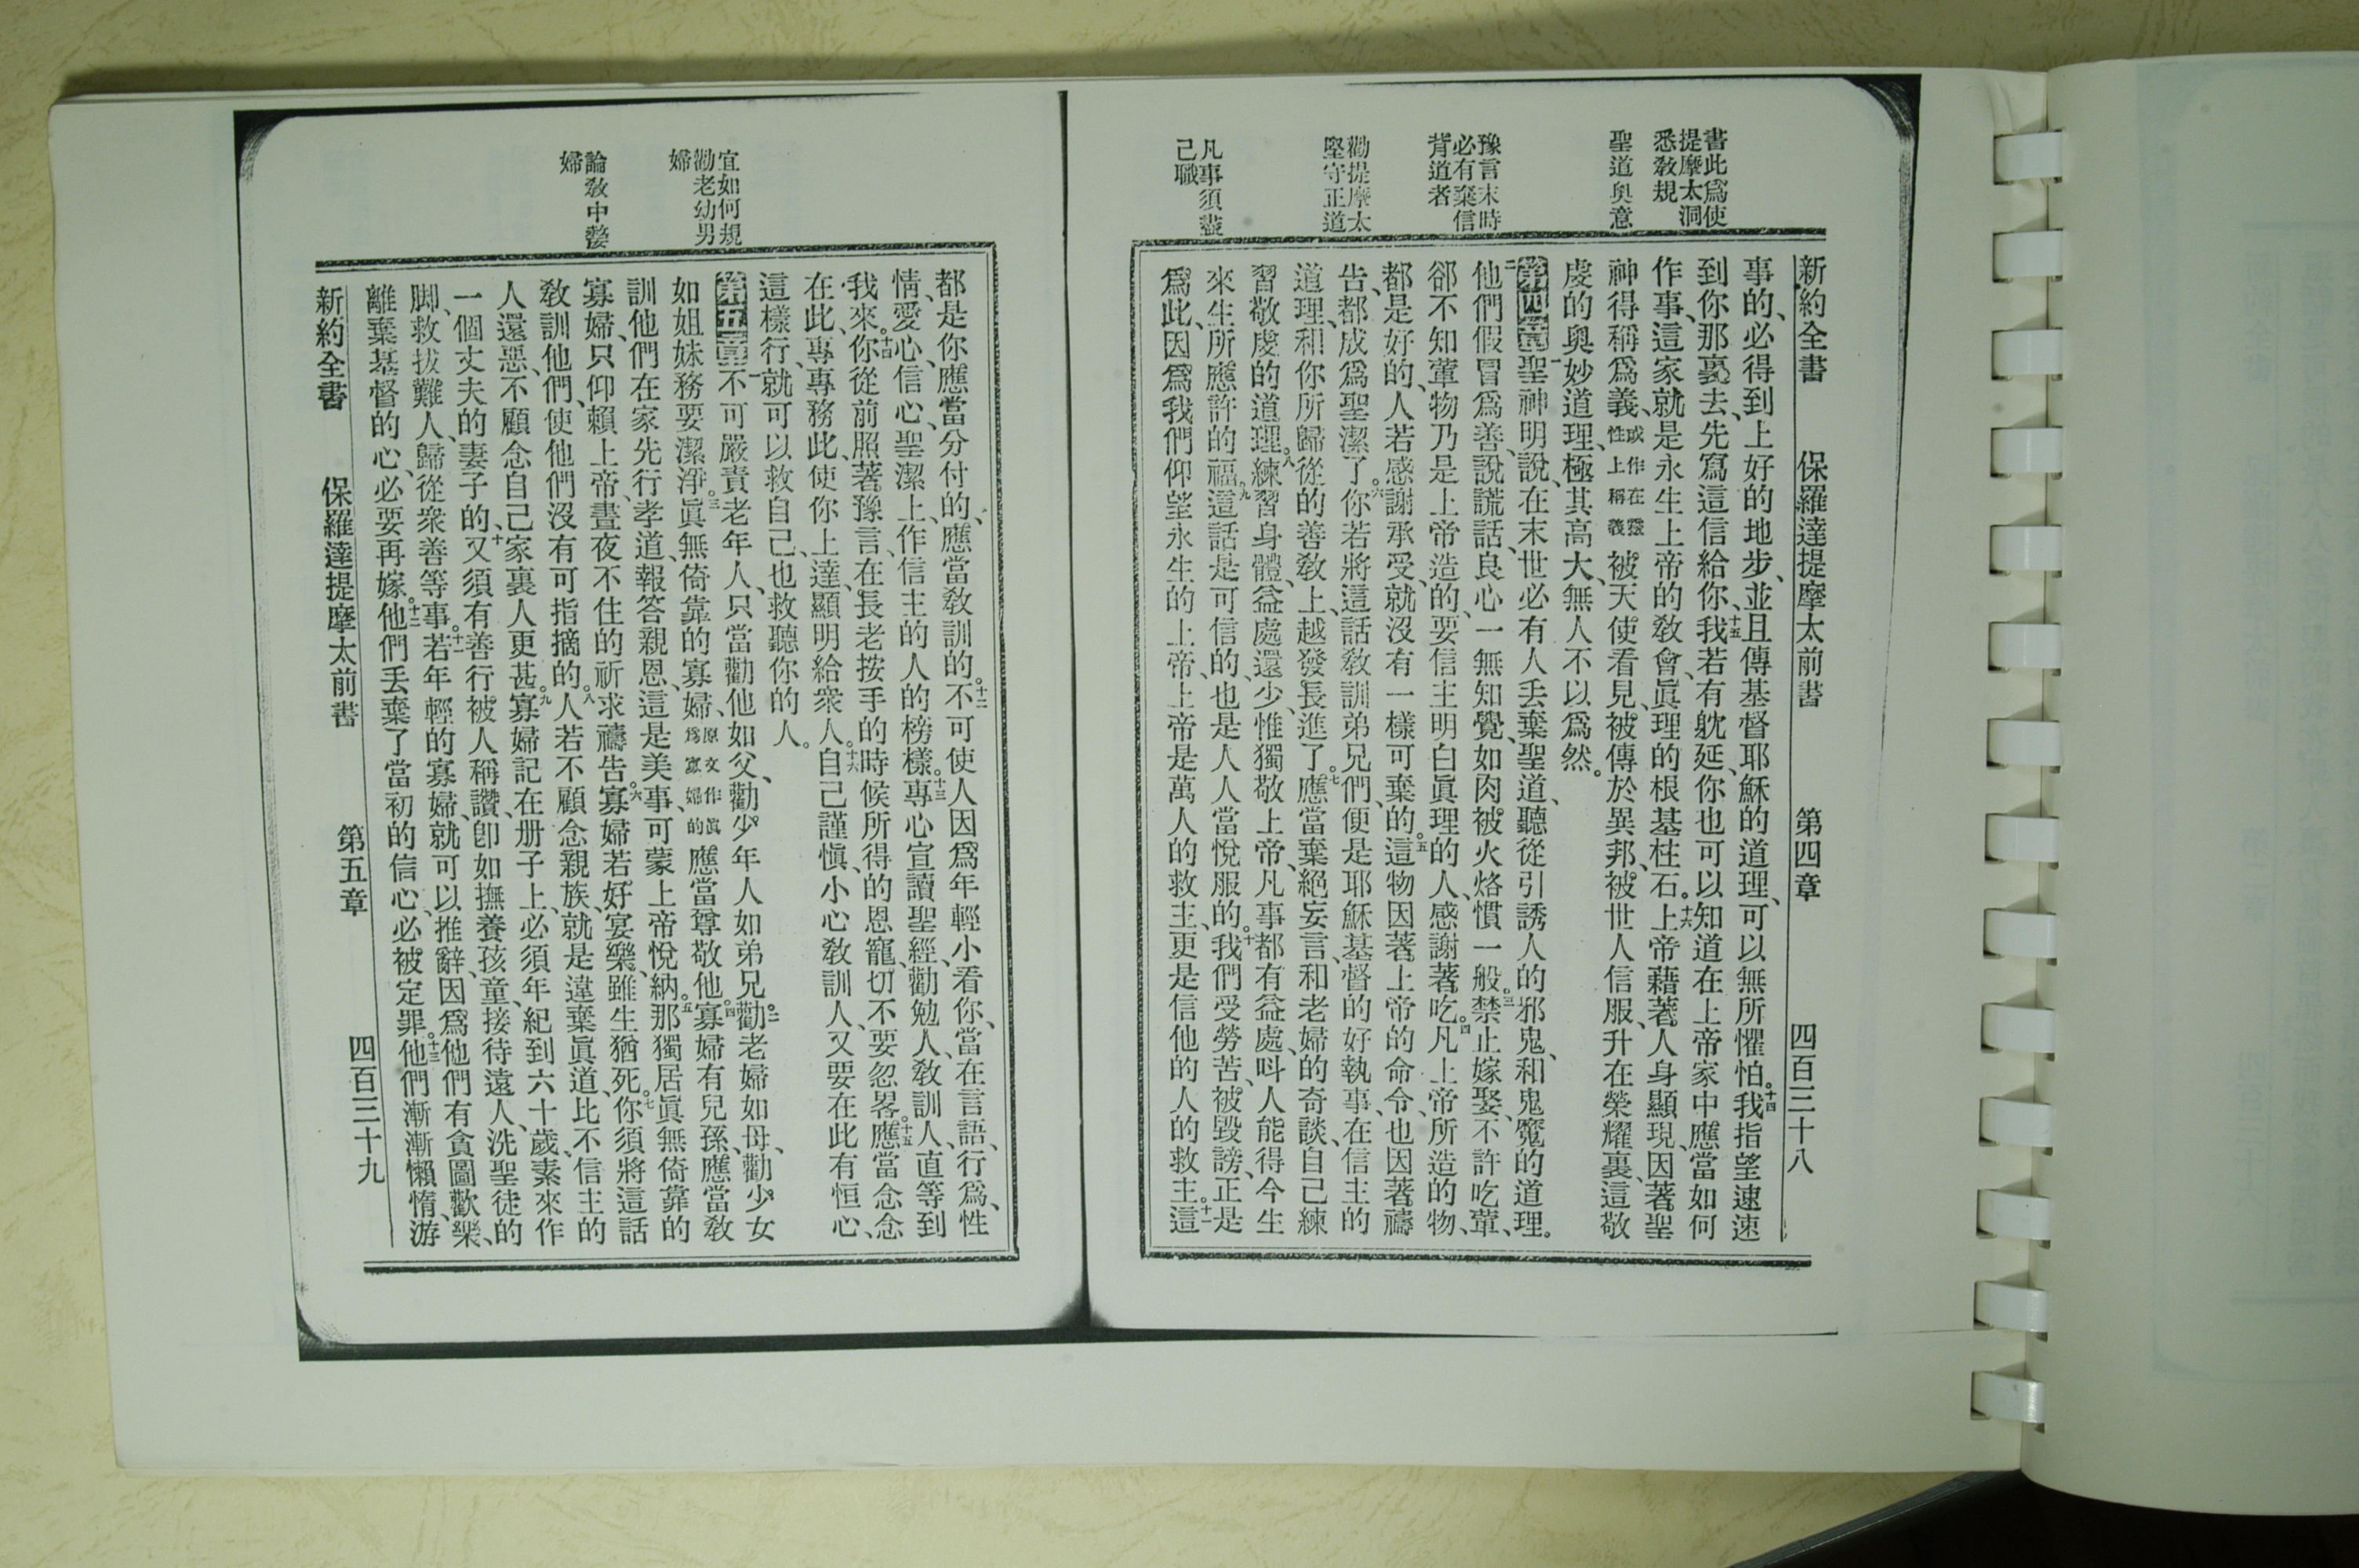 書此爲使
提摩太洞
悉敎規
聖道奧意
豫言末時
必有棄信
背道者
勸提摩太
堅守正道
凡事須盡
己職
新約全書 保羅達提摩太前書 第四章 四百三十八
事的、必得到上好的地步、並且傳基督耶穌的道理、可以無所懼怕。十四我指望速速
到你那裏去、先寫這信給你、十五我若有躭延、你也可以知道在上帝家中應當如何
作事、這家就是永生上帝的敎會、眞理的根基柱石。十六上帝藉著人身顯現、因著聖
神得稱爲義、或作在靈性上稱義被天使看見、被傳於異邦、被世人信服、升在榮耀裏、這敬
虔的奧妙道理、極其高大、無人不以爲然。
第四章一聖神明說、在末世必有人丟棄聖道、聽從引誘人的邪鬼、和鬼魔的道理。
二他們假冒爲善、說謊話、良心一無知覺、如肉被火烙慣一般。三禁止嫁娶、不許吃葷、
郤不知葷物乃是上帝造的、要信主明白眞理的人、感謝著吃。四凡上帝所造的物、
都是好的、人若感謝承受、就沒有一樣可棄的。五這物因著上帝的命令、也因著禱
告、都成爲聖潔了。六你若將這話敎訓弟兄們、便是耶穌基督的好執事、在信主的
道理、和你所歸從的善敎上、越發長進了。七應當棄絕妄言、和老婦的奇談、自己練
習敬虔的道理。八練習身體、益處還少、惟獨敬上帝、凡事都有益處、呌人能得今生
來生所應許的福。九這話是可信的、也是人人當悅服的。十我們受勞苦、被毀謗、正是
爲此、因爲我們仰望永生的上帝、上帝是萬人的救主、更是信他的人的救主。十一這
宜如何規
勸老幼男
婦
論敎中嫠
婦
都是你應當分付的、應當敎訓的。十二不可使人因爲年輕小看你、當在言語、行爲、性
情、愛心、信心、聖潔上、作信主的人的榜樣。十三專心宣讀聖經、勸勉人、敎訓人、直等到
我來。十四你從前照著豫言、在長老按手的時候所得的恩寵、切不要忽畧。十五應當念念
在此、專專務此、使你上達、顯明給衆人。十六自己謹愼、小心敎訓人、又要在此有恒心、
這樣行、就可以救自己、也救聽你的人。
第五章一不可嚴責老年人、只當勸他如父、勸少年人如弟兄。二勸老婦如母、勸少女
如姐妹、務要潔淨。三眞無倚靠的寡婦、原文作眞爲寡婦的應當尊敬他。四寡婦有兒孫、應當敎
訓他們在家先行孝道、報答親恩、這是美事、可蒙上帝悅納。五那獨居眞無倚靠的
寡婦、只仰賴上帝、晝夜不住的祈求禱告。六寡婦若好宴樂、雖生猶死。七你須將這話
敎訓他們、使他們沒有可指摘的。八人若不顧念親族、就是違棄眞道、比不信主的
人還惡、不顧念自己家裏人更甚。九寡婦記在册子上、必須年紀到六十歲、素來作
一個丈夫的妻子的、十又須有善行、被人稱讚、卽如撫養孩童、接待遠人、洗聖徒的
脚、救拔難人、歸從衆善等事。十一若年輕的寡婦、就可以推辭、因爲他們有貪圖歡樂、
離棄基督的心、必要再嫁。十二他們丟棄了當初的信心、必被定罪。十三他們漸漸懶惰、游
新約全書 保羅達提摩太前書 第五章 四百三十九